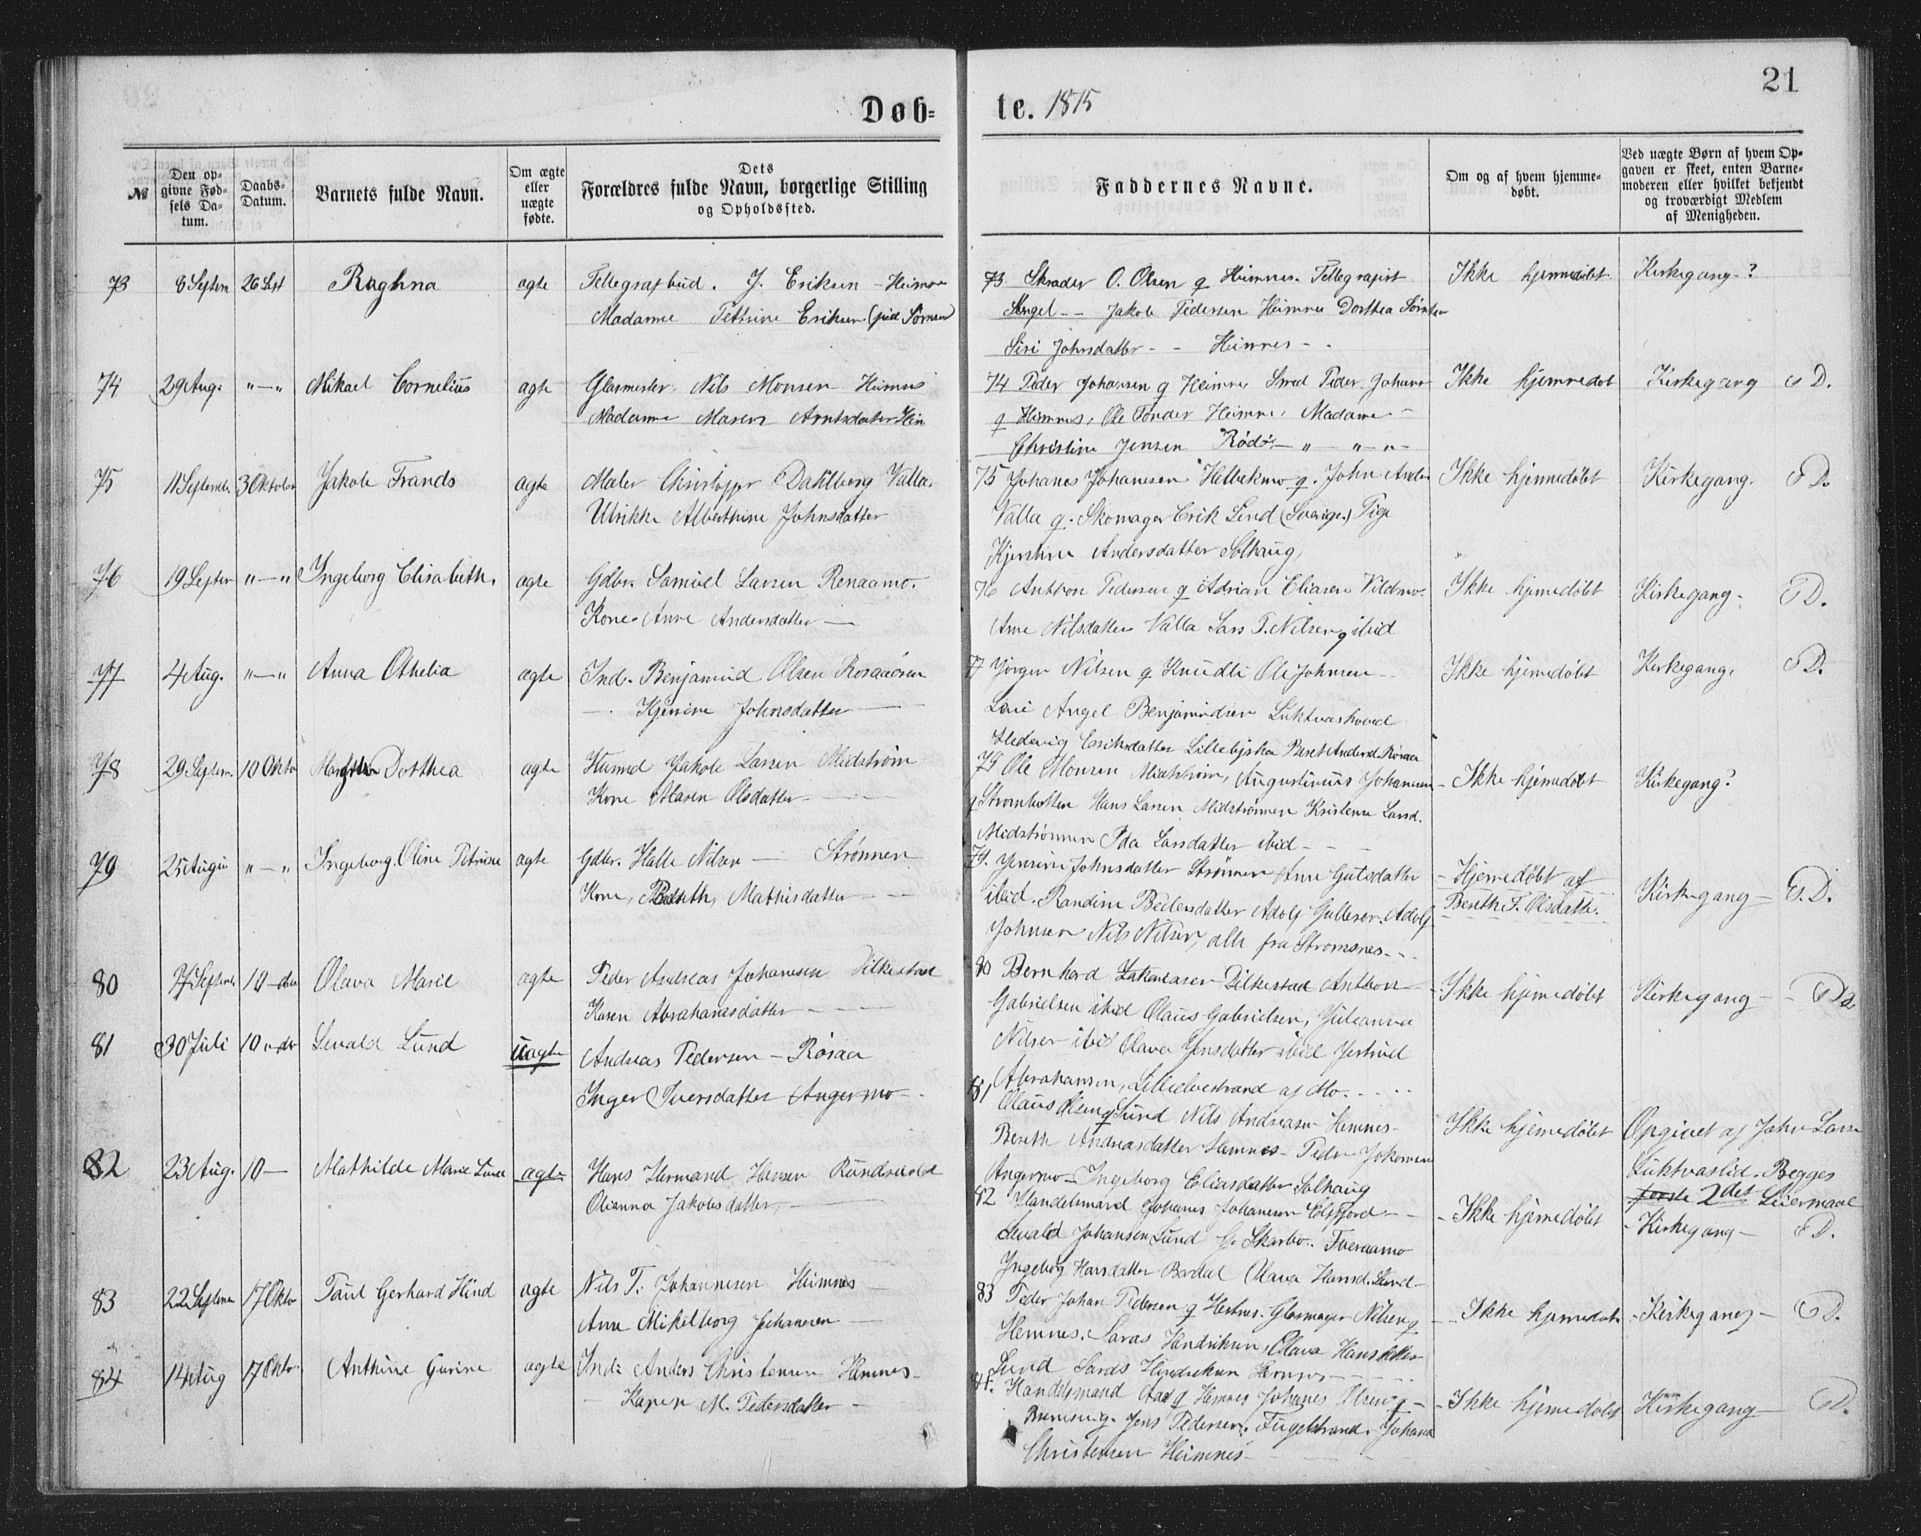 21
Døb=
te. 1875
№
Den op=
givne Fød=
sels Da=
tum.
Daabs=
Datum.
Barnets fulde Navn.
Om ægte
eller
uægte
fødte.
Dets
Forældres fulde Navn, borgerlige Stilling
og Opholdssted.
Faddernes Navne.
Om og af hvem hjemme=
døbt.
Ved uægte Børn af hvem Op=
gaven er skeet, enten Barne=
moderen eller hvilket bekjendt
og troværdigt Medlem
af Menigheden.
73 8 Septem 26 Sept Raghna agte Tellegrafbud. J. Eriksen - Heimnes
Madame Pettrine Eriksen
73 Skrader O. Olsen g Heimnes. Tellegrafist
Angel - - Jakob Pedersen Heimnes Dorthea
Siri Johnsdatter - - Heimnes - -
Ikke hjemmedøbt Kirkegang - ?
74 29 Aug. " - " Mikael Cornelius agte Glasmester Nils Monsen Heimnes
Madame Maren Arntsdatter Hein
74 Peder Johansen g Heimnes Smed Peder Johans
g Heimnes, Ole Tønder Heimnes, Madame -
Christine Jensen Rødø - " - " - " -
Ikke hjemmedøbt Kirkegang D.
75 11 September 3 Oktober Jakob Frands agte Maler Christoffer Dahlberg Valla.
Ulrikke Alberthine Johnsdatter
75 Johanes Johanesen Helbekmo g. John Anders
Valla g. Skomager Erik Lind (Sverige.) Pige
Kjerstine Andersdatter Solhaug,
Ikke hjemedøbt Kirkegang. D.
76 19 Septer " - " Ingeborg Elisabeth. agte Gdbr. Samuel Larsen Renaamo.
Kone Anne Andersdatter -
76 Anthon Pedersen g Adrian Eliasen Vildmo.
Ane Nilsdatter Valla Lars T. Nilsen g ibid
Ikke hjemedøbt Kirkegang - D.
77 4 Aug. " - " Anna Othelia agte Ind. Benjamin Olsen
- Johnsdatter -
77 Jørgen Nilsen g Knudli Ole Johnsen - -
Angel Benjaminsen Luktvashoved
Hedevig Eriksdatter
Ikke hjemedøbt Kirkegang. D.
78 29 Septem. 10 Okto Dorthea agte Husmd Jakob Larsen Midstrøm
Kone Maren Olsdatter -
78 Ole Monsen Midstrøm, Augustinius Johansen
g Strømbotten Hans Larsen Midstrømmen Kristense Larsd.
Midstrømmen Ida Larsdatter ibid - - -
- Ikke hjemedøbt Kirkegang?
79 25 Augu " - " Ingeborg. Oline Petrine agte Gdbr. Halle Nilsen - Strømmen
Kone, Bereth, Mathisdatter - -
79. Jensine Johnsdatter Strømmen Ane Gutesdatter
ibid. Randine Pedersdatter Adolf Gullesen. Adolf
Johnsen Nils Nilsen, alle fra Strømsnes. - -
- Hjemedøbt af
Bereth F. Olsdatter.
Kirkegang - D.
80 17 Septem 10 - do Olava Marie agte Peder Andreas Johanesen Dilkestad
Karen Abrahamsdatter - -
80 Bernhard Zakariasen Dilkestad Anthon -
Gabrielsen ibid Olaus Gabrielsen, Julianna
Nilsen ibid Olava Jensdatter ibid
Abrahamsen, af Mo. - -
Ikke hjemedøbt Kirkegang - - D.
81 30 Juli 10 - do Sevald Lund uagte Andreas Pedersen - Røsaa
Inger Iversdatter Angermo -
81 Olaus Olsen g Lund Nils Andreasen Hemnes -
Bereth Andreasdatter Hemnes - Peder Johansen
Angermo - Ingeborg Eliasdatter Solhaug
Ikke hjemedøbt Opgivet af John Larsen
Luktvaslid. Begges
første 2det Leiermaal
82 23 Aug. 10 - Mathilde Marie Lund agte Hans Hermand Hansen
Oleanna Jakobsdatter, -
82 Handelsmand Johanes Johanesen Elsfjord - -
Sevald Johansen Lund Skarbo. Tveraamo
Ingeborg Hansdatter Bardal Olava Hansd. Lund -
- Ikke hjemedøbt - Kirkegang - D.
83 22 Septem 17 Okto Paul Gerhard Hind agte Nils T. Johannesen Heimnes -
Ane Mikelborg Johansen -
83 Peder Johan Pedersen g Hemnes. Glasmager Nilsen g
Hemnes. Hendriksen, Olava Hansdatter
Lund Hendriksen Hemnes - - -
- Ikke hjemedøbt - Kirkegang - D.
84 14 Aug 17 Okto. Anthine Gurine agte Ind. Anders Christensen Hemnes -
- Karen M. Pedersdatter -
84. Handelsmand g Hemnes Johanes Olsen g -
Jens Pedersen, Fugelstrand. Johan
Christensen Heimnes -
- Ikke hjemedøbt Kirkegang - D.